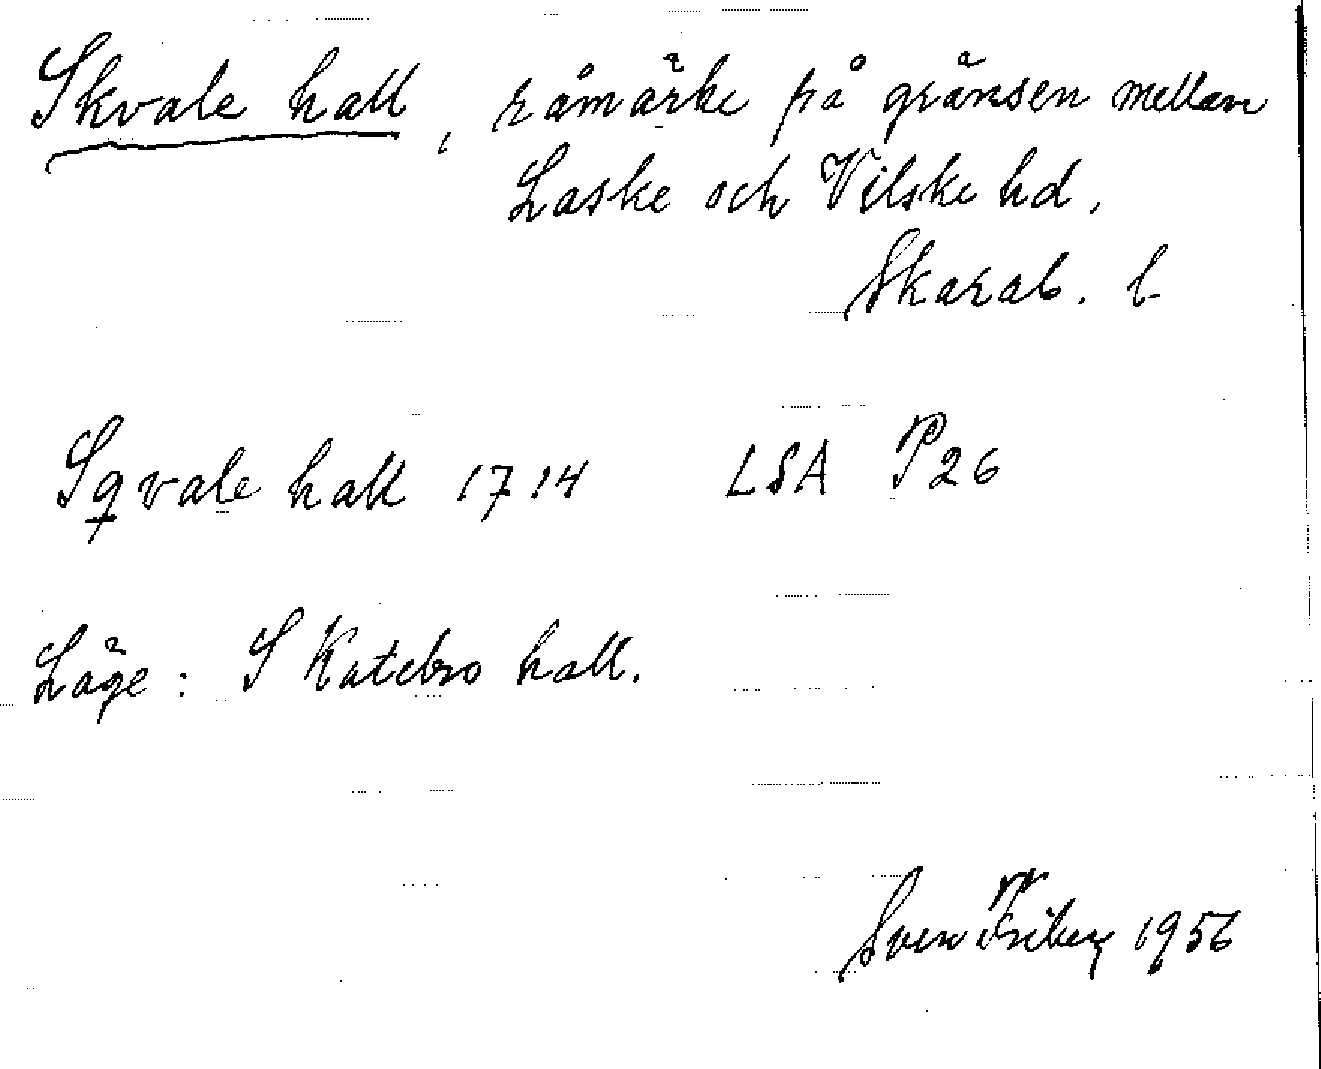 Skvale hall, råmärke på gränsen mellan
Laske och Vilske hd,
Skarab. l.
Sqvale hall 1714 LSA P26
Läge: S Katebro hall.
Sven Friberg 1956